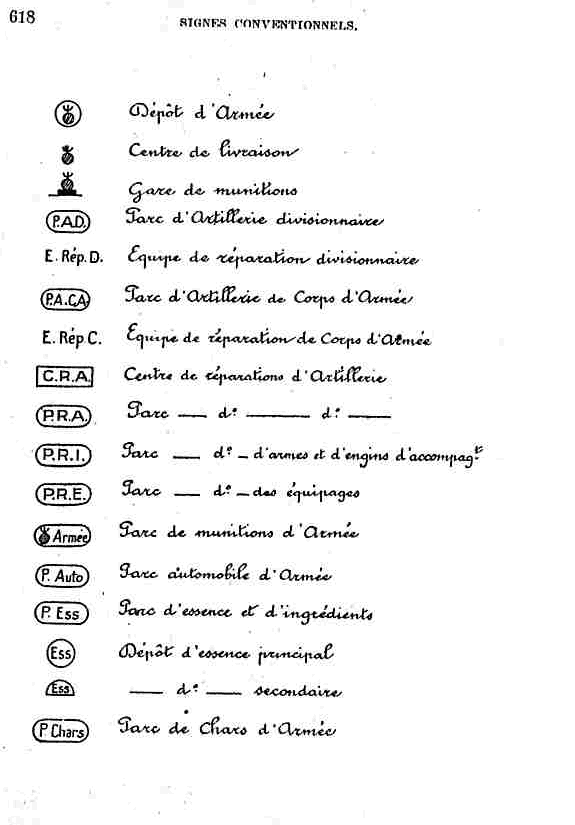 618
SIGNES CONVENTIONNELS.
Dépôt d'Armée
Centre de livraison
Gare de munitions
P.A.D. Parc d'Artillerie divisionnaire
E. Rép. D. Equipe de réparation divisionnaire
P.A.C.A Parc d'Artillerie de Corps d'Armée
E. Rép C. Equipe de réparation de Corps d'Armée
C.R.A. Centre de réparations d'Artillerie
P.R.A. Parc — d° — d° —
P.R.I. Parc — d° — d'armes et d'engins d'accompagt
P.R.E. Parc — d° — des équipages
Armée Parc de munitions d'Armée
P. Auto Parc automobile d'Armée
P. Ess Parc d'essence et d'ingrédients
Ess Dépôt d'essence principal
Ess — d° — secondaire
P Chars Parc de Chars d'Armée